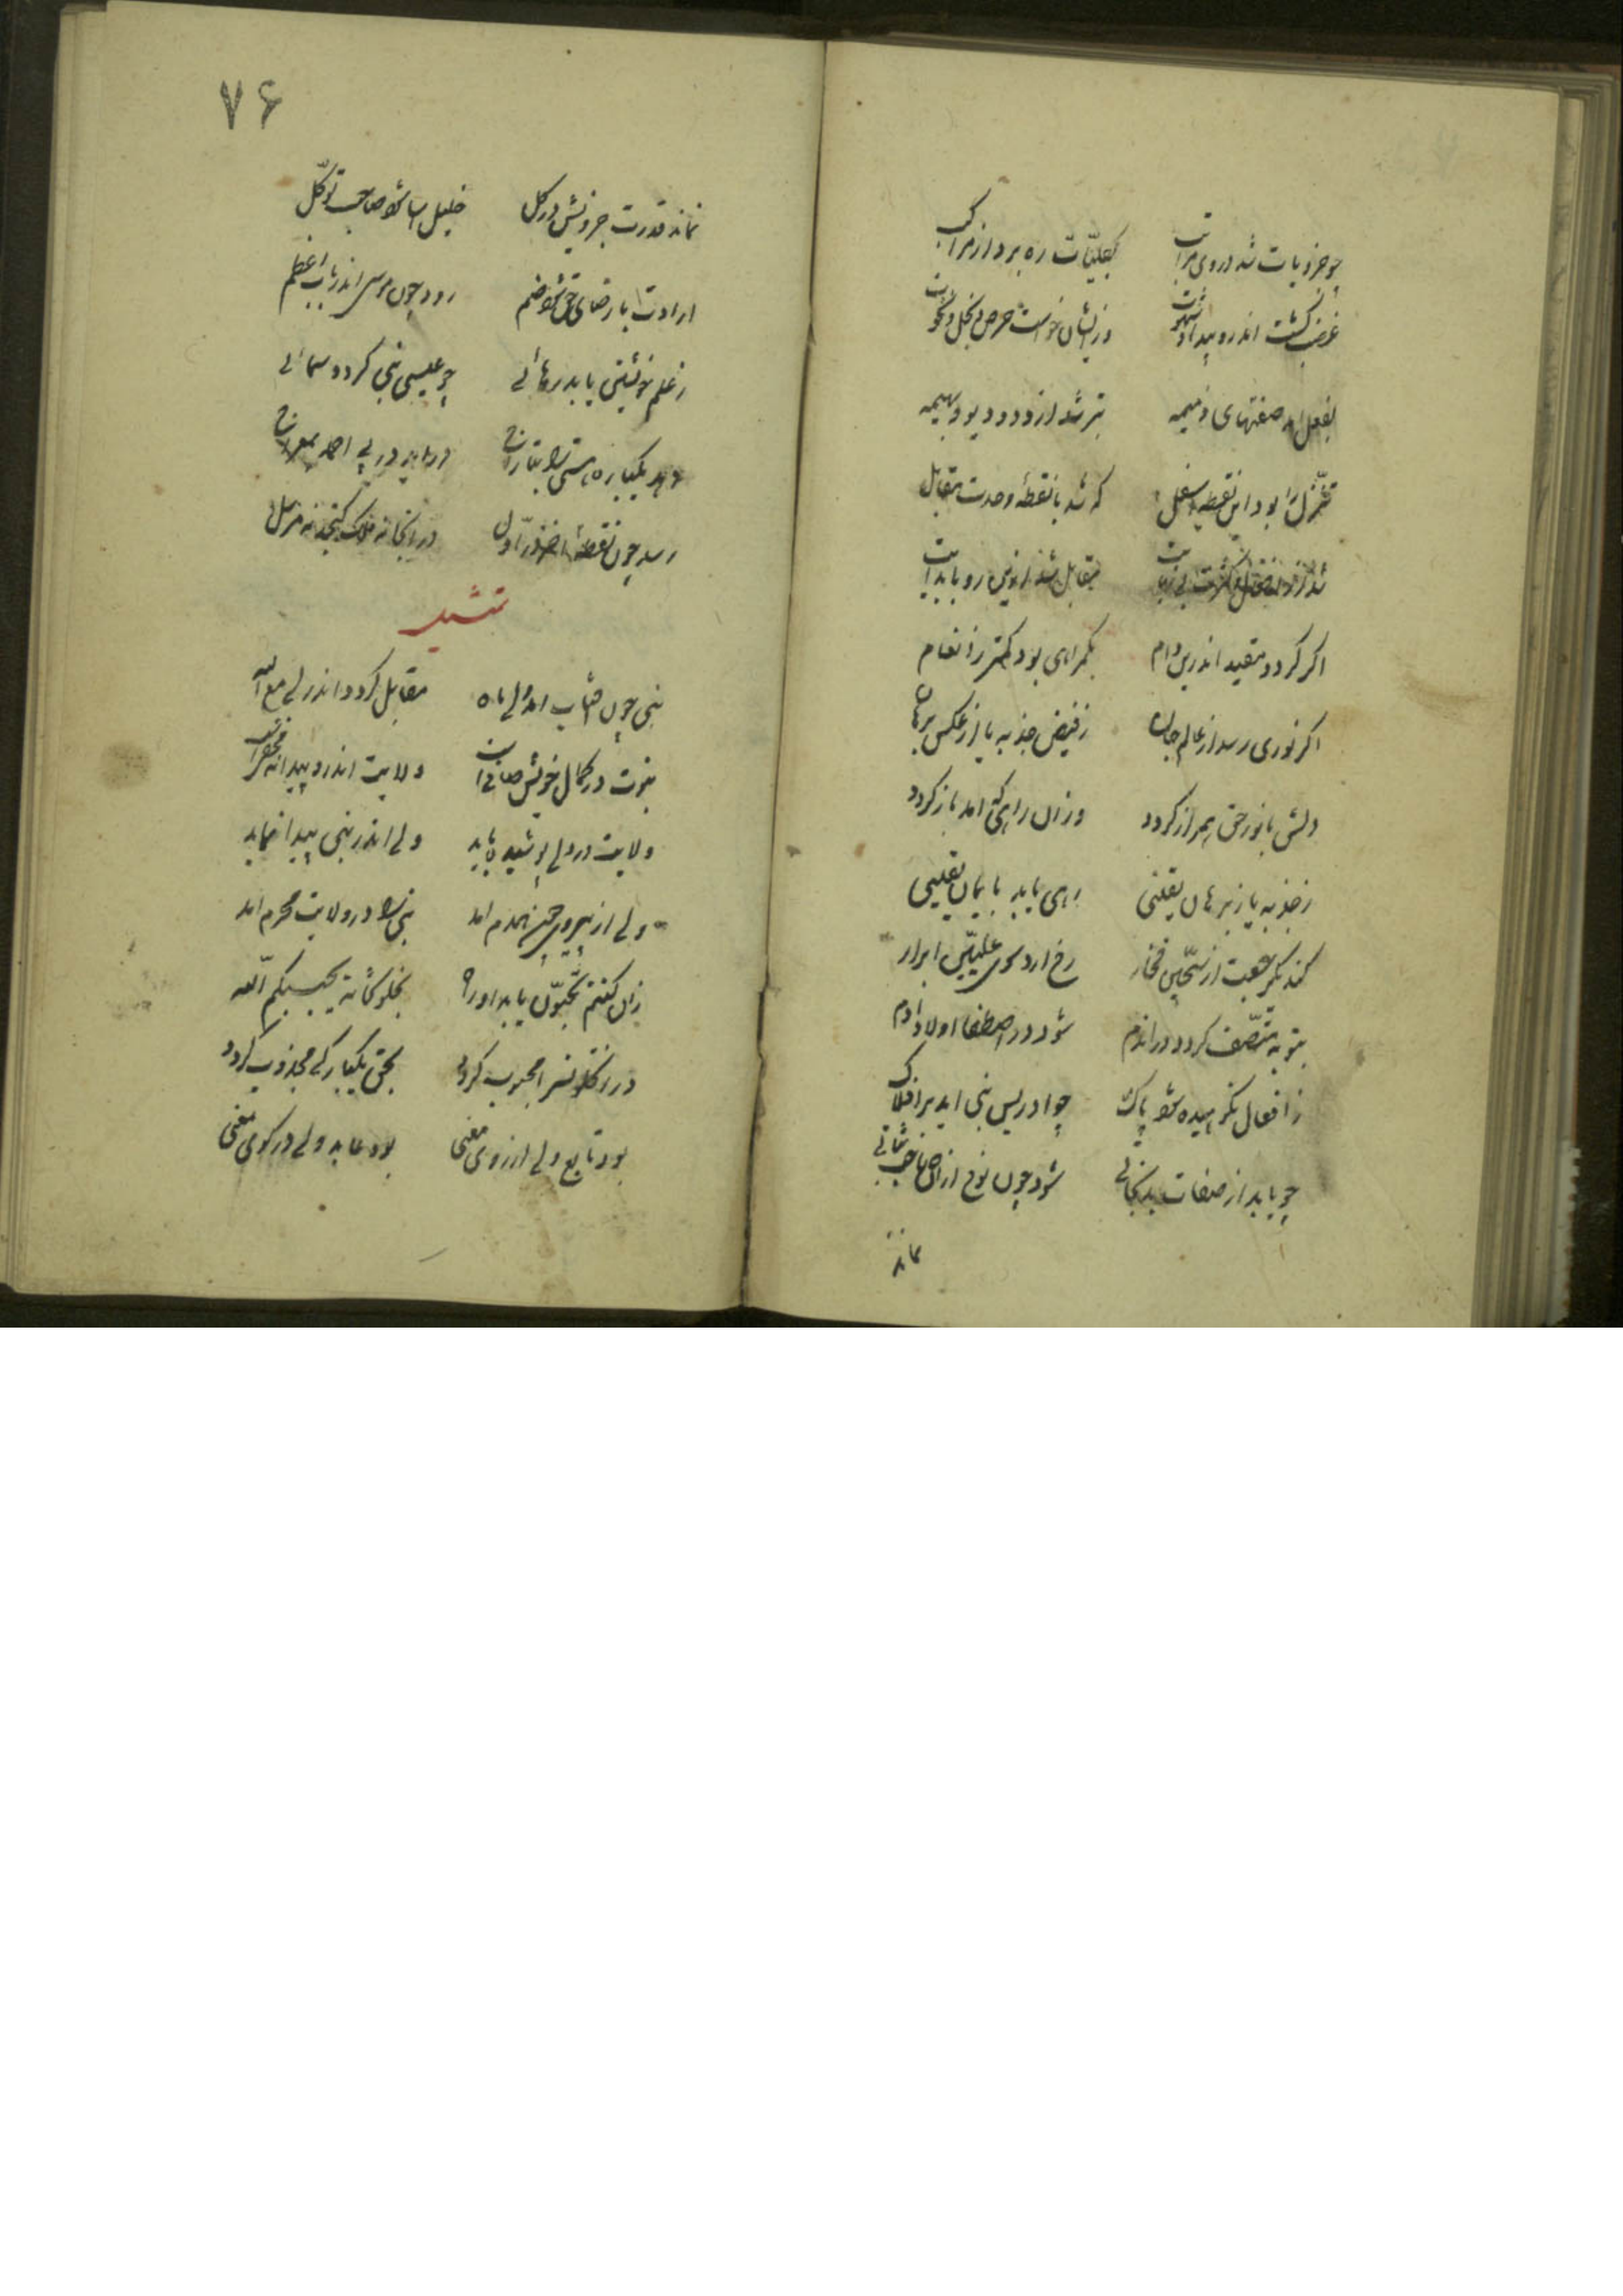 چو جزویات شد بر وی مرتب بکلیّات ره برد از مرکب
غضب گشت اندرو پیدا و شهوت وزیشان خواست حرص و بخل و نخوت
بفعل آمد صفتهای ذمیمه بتر شد از دد و دیو و بهیمه
تنزّل را بود این نقطه اسفل که شد با نقطهٔ وحدت مقابل
شد از افعال کثرت بی نهایت مقابل شد ازین رو با بدایت
اگر گردد مقید اندرین دام بگمراهی بود کمتر ز انعام
اگر نوری رسد از عالم جان ز فیض جذبه یا از عکس برهان
دلش با نور حق همراز گردد وزان راهی که آمد باز گردد
ز جذبه یا ز برهان یقینی رهی یابد بایمان یقینی
کند یک رجعت از سجّین فجّار رخ آرد سوی علیّین ابرار
بتوبه متّصف گردد در آندم شود در اصطفا اولاد آدم
ز افعال نکوهیده شود پاک چو ادریس نبی آید بر افلاک
چو یابد از صفات بد نجاتی شود چون نوح ازان صاحب ثباتی
نماند
۷۶
نماند قدرت جزویش در کل خلیل آسا شود صاحب توکّل
ارادت با رضای حق شود ضم رود چون موسی اندر باب اعظم
ز علم خویشتن یابد رهائی چو عیسی نبی گردد سمائی
دهد یکباره هستی را بتاراج درآید در پی احمد بمعراج
رسد چون نقطهٔ آخر باوّل در آنجا نه ملک گنجد نه مرسل
تمثیل
نبی چون آفتاب آمد ولی ماه مقابل گردد اندر لی مع الله
نبوت در کمال خویش صافی است ولایت اندرو پیدا نه مخفی است
ولایت در ولی پوشیده باید ولی اندر نبی پیدا نماید
ولی از پیروی چون همدم آمد نبی را در ولایت محرم آمد
ز ان کنتم تحبّون یابد او راه بخلوتخانه یحببکم الله
در آن خلوتسرا محبوب گردد بحق یکبارگی مجذوب گردد
بود تابع ولی از روی معنی بود عابد ولی در کوی معنی